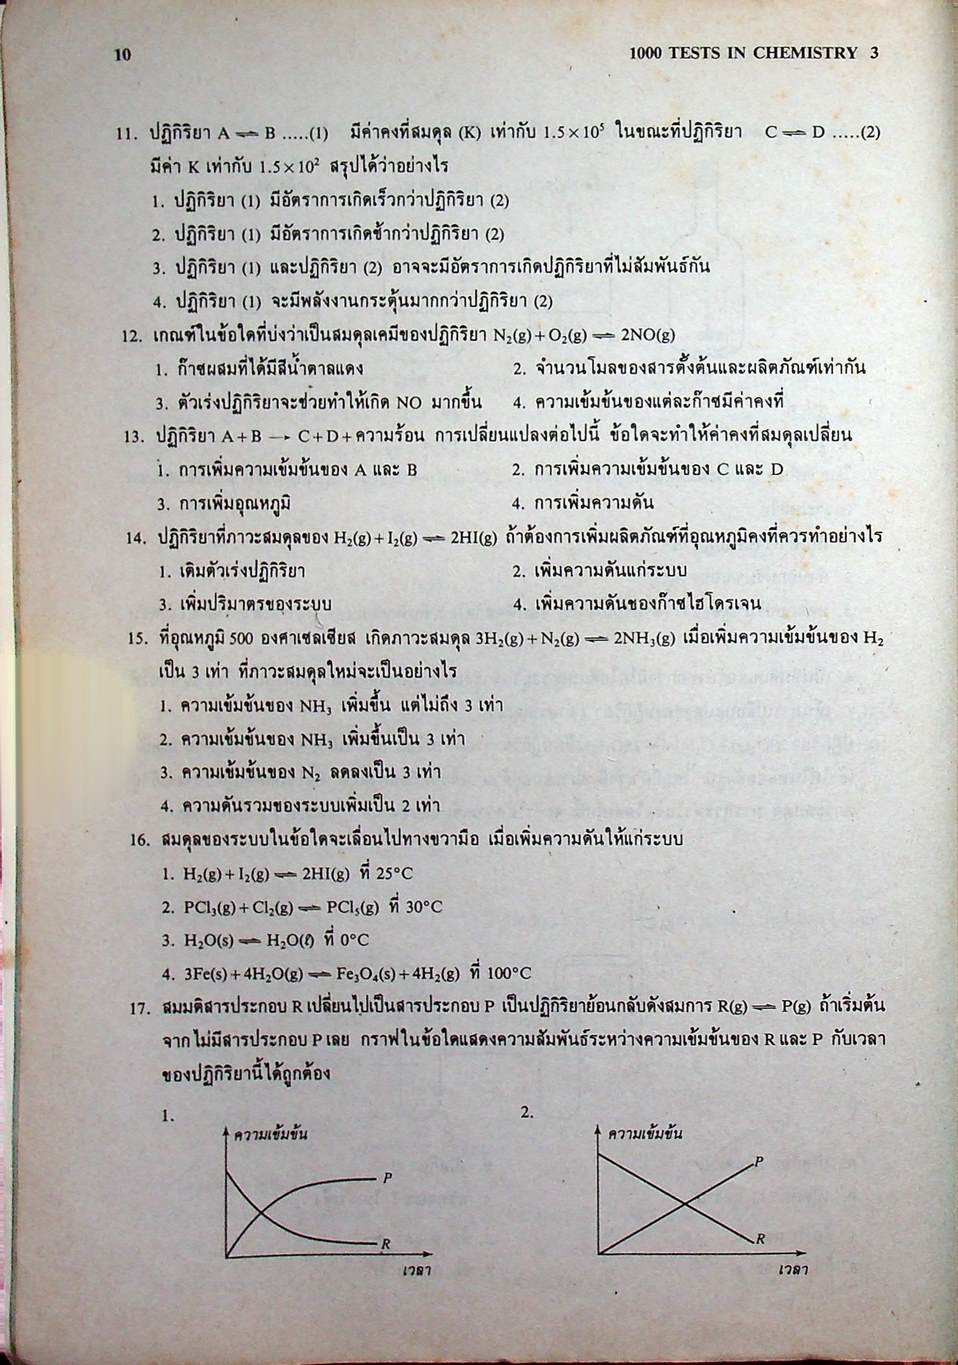 10
1000 TESTS IN CHEMISTRY 3
11. ปฏิกิริยา A ⇌ B .....(1) มีค่าคงที่สมดุล (K) เท่ากับ 1.5 × 10⁵ ในขณะที่ปฏิกิริยา C ⇌ D .....(2)
มีค่า K เท่ากับ 1.5 × 10² สรุปได้ว่าอย่างไร
1. ปฏิกิริยา (1) มีอัตราการเกิดเร็วกว่าปฏิกิริยา (2)
2. ปฏิกิริยา (1) มีอัตราการเกิดช้ากว่าปฏิกิริยา (2)
3. ปฏิกิริยา (1) และปฏิกิริยา (2) อาจจะมีอัตราการเกิดปฏิกิริยาที่ไม่สัมพันธ์กัน
4. ปฏิกิริยา (1) จะมีพลังงานกระตุ้นมากกว่าปฏิกิริยา (2)
12. เกณฑ์ในข้อใดที่บ่งว่าเป็นสมดุลเคมีของปฏิกิริยา N₂(g) + O₂(g) ⇌ 2NO(g)
1. ก๊าซผสมที่ได้มีสีน้ำตาลแดง 2. จำนวนโมลของสารตั้งต้นและผลิตภัณฑ์เท่ากัน
3. ตัวเร่งปฏิกิริยาจะช่วยทำให้เกิด NO มากขึ้น 4. ความเข้มข้นของแต่ละก๊าซมีค่าคงที่
13. ปฏิกิริยา A + B → C + D + ความร้อน การเปลี่ยนแปลงต่อไปนี้ ข้อใดจะทำให้ค่าคงที่สมดุลเปลี่ยน
1. การเพิ่มความเข้มข้นของ A และ B 2. การเพิ่มความเข้มข้นของ C และ D
3. การเพิ่มอุณหภูมิ 4. การเพิ่มความดัน
14. ปฏิกิริยาที่ภาวะสมดุลของ H₂(g) + I₂(g) ⇌ 2HI(g) ถ้าต้องการเพิ่มผลิตภัณฑ์ที่อุณหภูมิคงที่ควรทำอย่างไร
1. เติมตัวเร่งปฏิกิริยา 2. เพิ่มความดันแก่ระบบ
3. เพิ่มปริมาตรของระบบ 4. เพิ่มความดันของก๊าซไฮโดรเจน
15. ที่อุณหภูมิ 500 องศาเซลเซียส เกิดภาวะสมดุล 3H₂(g) + N₂(g) ⇌ 2NH₃(g) เมื่อเพิ่มความเข้มข้นของ H₂
เป็น 3 เท่า ที่ภาวะสมดุลใหม่จะเป็นอย่างไร
1. ความเข้มข้นของ NH₃ เพิ่มขึ้น แต่ไม่ถึง 3 เท่า
2. ความเข้มข้นของ NH₃ เพิ่มขึ้นเป็น 3 เท่า
3. ความเข้มข้นของ N₂ ลดลงเป็น 3 เท่า
4. ความดันรวมของระบบเพิ่มเป็น 2 เท่า
16. สมดุลของระบบในข้อใดจะเลื่อนไปทางขวามือ เมื่อเพิ่มความดันให้แก่ระบบ
1. H₂(g) + I₂(g) ⇌ 2HI(g) ที่ 25°C
2. PCl₃(g) + Cl₂(g) ⇌ PCl₅(g) ที่ 30°C
3. H₂O(s) ⇌ H₂O(ℓ) ที่ 0°C
4. 3Fe(s) + 4H₂O(g) ⇌ Fe₃O₄(s) + 4H₂(g) ที่ 100°C
17. สมมติสารประกอบ R เปลี่ยนไปเป็นสารประกอบ P เป็นปฏิกิริยาย้อนกลับดังสมการ R(g) ⇌ P(g) ถ้าเริ่มต้น
จากไม่มีสารประกอบ P เลย กราฟในข้อใดแสดงความสัมพันธ์ระหว่างความเข้มข้นของ R และ P กับเวลา
ของปฏิกิริยานี้ได้ถูกต้อง
1.
ความเข้มข้น
P
R
เวลา
2.
ความเข้มข้น
P
R
เวลา